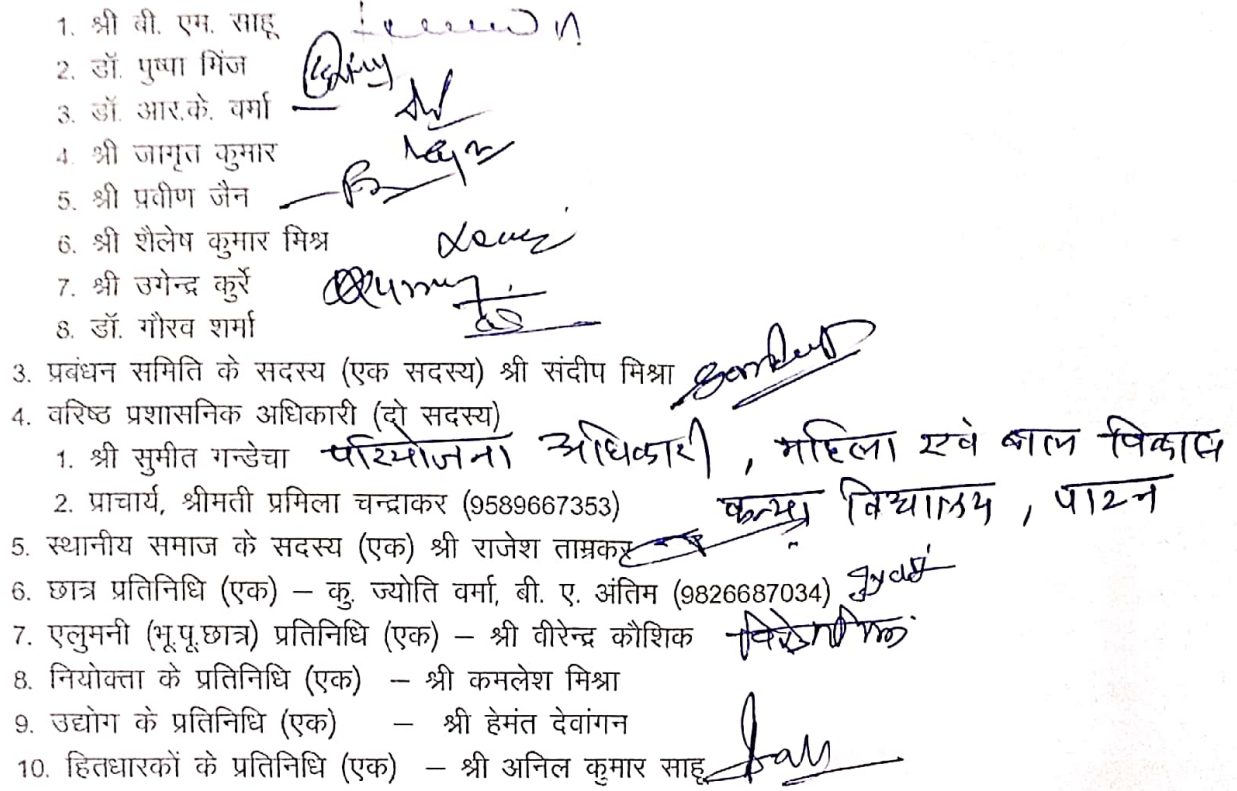 1. श्री बी. एम. साहू
2. डॉ. पुष्पा मिंज
3. डॉ. आर.के. वर्मा
4. श्री जागृत कुमार
5. श्री प्रवीण जैन
6. श्री शैलेष कुमार मिश्र
7. श्री उगेन्द्र कुर्रे
8. डॉ. गौरव शर्मा
3. प्रबंधन समिति के सदस्य (एक सदस्य) श्री संदीप मिश्रा
4. वरिष्ठ प्रशासनिक अधिकारी (दो सदस्य)
1. श्री सुमीत गन्डेचा परियोजना अधिकारी, महिला एवं बाल विकास
2. प्राचार्य, श्रीमती प्रमिला चन्द्राकर (9589667353) कन्या विद्यालय, पाटन
5. स्थानीय समाज के सदस्य (एक) श्री राजेश ताम्रकर
6. छात्र प्रतिनिधि (एक) – कु. ज्योति वर्मा, बी. ए. अंतिम (9826687034)
7. एलुमनी (भू.पू.छात्र) प्रतिनिधि (एक) – श्री वीरेन्द्र कौशिक
8. नियोक्ता के प्रतिनिधि (एक) – श्री कमलेश मिश्रा
9. उद्योग के प्रतिनिधि (एक) – श्री हेमंत देवांगन
10. हितधारकों के प्रतिनिधि (एक) – श्री अनिल कुमार साहू